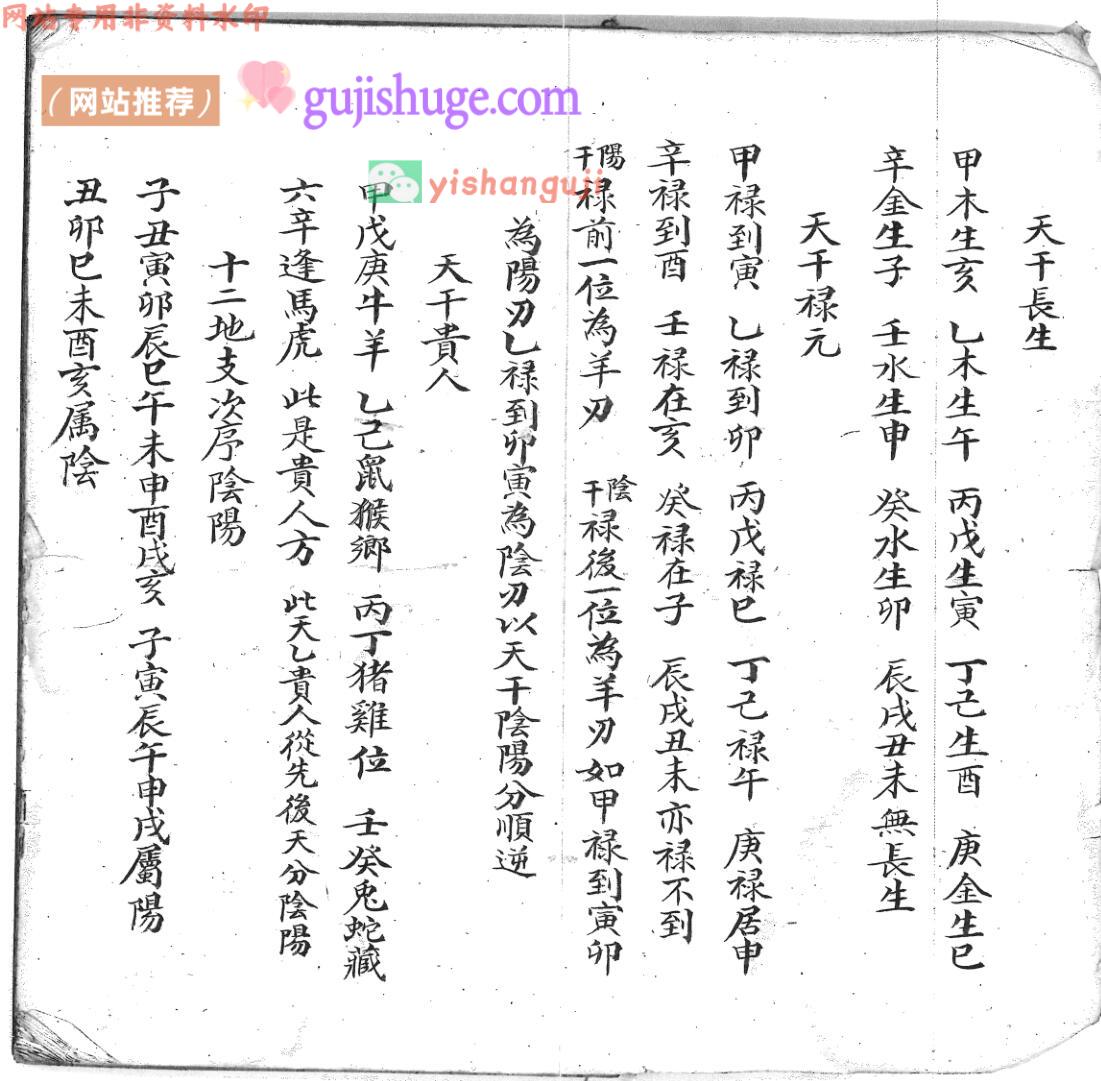 网站专用非资料水印
（网站推荐）
gujishuge.com
yishanguji
天干長生
甲木生亥 乙木生午 丙戊生寅 丁己生酉 庚金生巳
辛金生子 壬水生申 癸水生卯 辰戌丑未無長生
天干禄元
甲禄到寅 乙禄到卯 丙戊禄巳 丁己禄午 庚禄居申
辛禄到酉 壬禄在亥 癸禄在子 辰戌丑未亦禄不到
陽干禄前一位為羊刃 陰干禄後一位為羊刃如甲禄到寅卯
為陽刃乙禄到卯寅為陰刃以天干陰陽分順逆
天干貴人
甲戊庚牛羊 乙己鼠猴鄉 丙丁猪雞位 壬癸兎蛇藏
六辛逢馬虎 此是貴人方 此天乙貴人從先後天分陰陽
十二地支次序陰陽
子丑寅卯辰巳午未申酉戌亥 子寅辰午申戌屬陽
丑卯巳未酉亥属陰